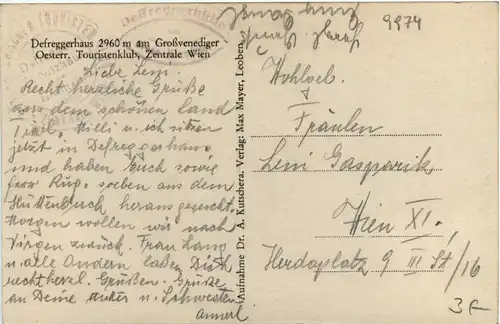 Defreggerhaus 2960 m am Großvenediger
Oesterr. Touristenklub, Zentrale Wien
Liebe Leni
Recht herzliche Grüße
aus dem schönen Land
Tirol. Milli u. ich sitzen
jetzt in Defreggerhaus
und haben Euch sowie
soeben aus dem
Hüttenbuch herausgesucht.
Morgen wollen wir nach
Virgen zurück. Frau Lang
u. alle Andern laßen Dich
rechtherzl. Grüßen. Grüße
an Deine Mutter u. Schwester
Annerl
Aufnahme Dr. A. Kutschera. Verlag: Max Mayer, Leoben
9974
Wohlgeb.
Fräulein
Leni Gasparik
Wien XI.,
Herderplatz 9 III St/16